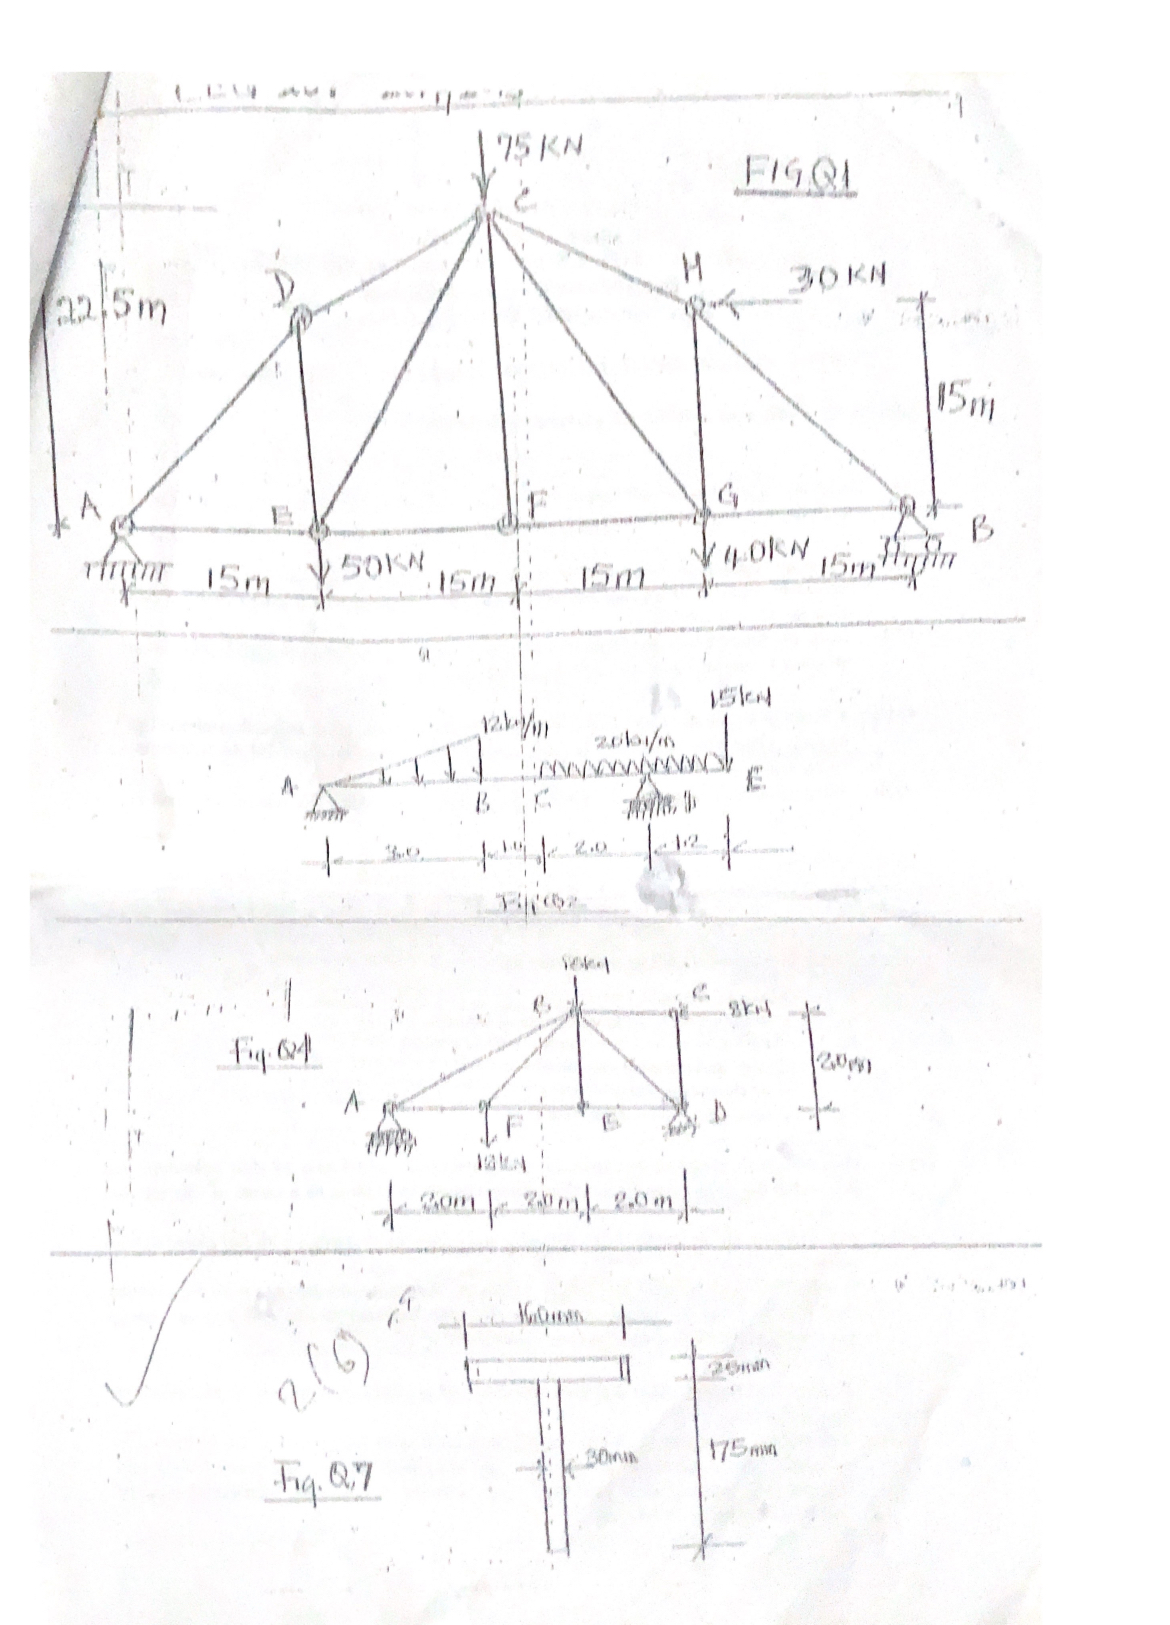 75KN
FIG.Q1
C
H
30KN
D
22.5m
15m
A
E
F
G
B
50KN
40KN
15m
15m
15m
15m
15kN
12kN/m
20kN/m
A
B
C
D
E
3.0
1.0
2.0
1.2
B
C
8kN
Fig. Q4
2.0m
A
F
E
D
2.0m
2.0m
2.0m
160mm
2(6)
25mm
175mm
30mm
Fig. Q.7